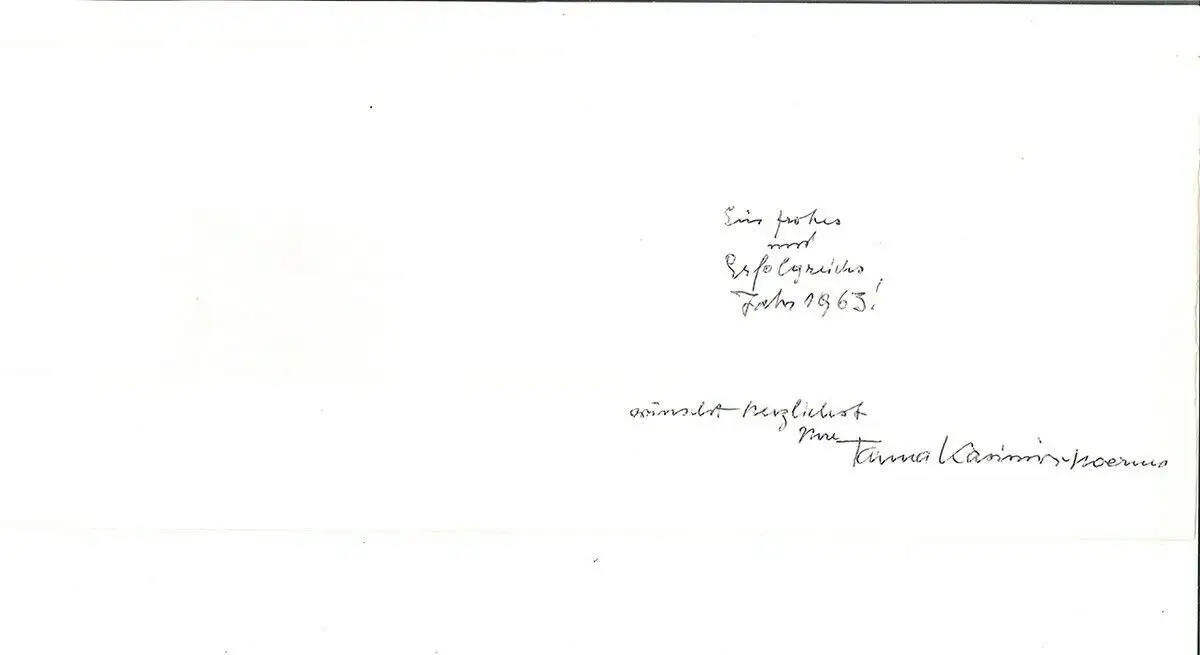 Ein frohes
und
Erfolgreiches
Jahr 1963!
wünscht herzlichst
Ihre
Tamna Kasimir-Hoernes